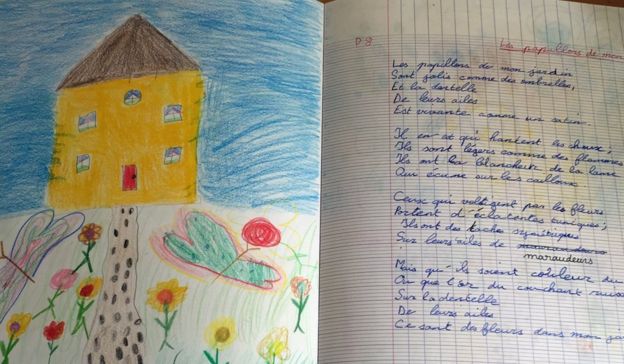 P 8
Les papillons de mon
Les papillons de mon jardin
Sont jolis comme des ombrelles,
Et la dentelle
De leurs ailes
Est vivante comme un satin
Il en est qui hantent les choux,
Ils sont légers comme des flammes
Ils ont la blancheur de la lame
Qui écume sur les cailloux
Ceux qui voltigent par les fleurs
Portent d'éclatantes
Ils ont des taches
Sur leurs ailes de
maraudeurs
Mais qu'ils soient couleur du
Ou que l'or du couchant
Sur la dentelle
De leurs ailes
Ce sont des fleurs dans mon